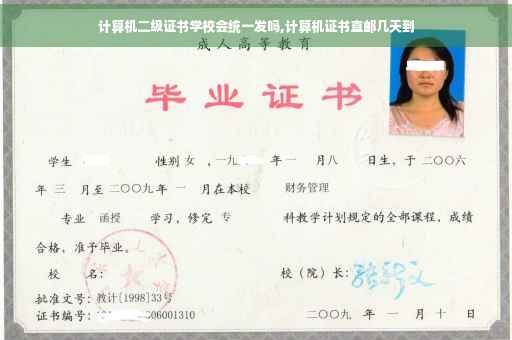 计算机二级证书学校会统一发吗,计算机证书直邮几天到
成人高等教育
毕业证书
学生 性别 女 ，一九 年 一 月八 日生，于 二〇〇六
年 三 月至 二〇〇九 年 一 月在本校 财务管理
专业 函授 学习，修完 专 科教学计划规定的全部课程，成绩
合格，准予毕业。
校 名： 校（院）长：
批准文号：教计[1998]33号
证书编号： 06001310 二〇〇九 年 一 月 十 日